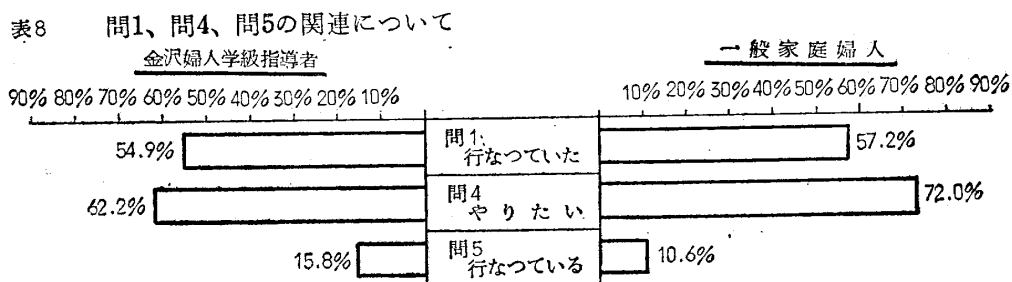 表8 問1、問4、問5の関連について
金沢婦人学級指導者 一般家庭婦人
90% 80% 70% 60% 50% 40% 30% 20% 10% 10% 20% 30% 40% 50% 60% 70% 80% 90%
問1:
54.9% 行なつていた 57.2%
問4
62.2% やりたい 72.0%
問5
15.8% 行なつている 10.6%